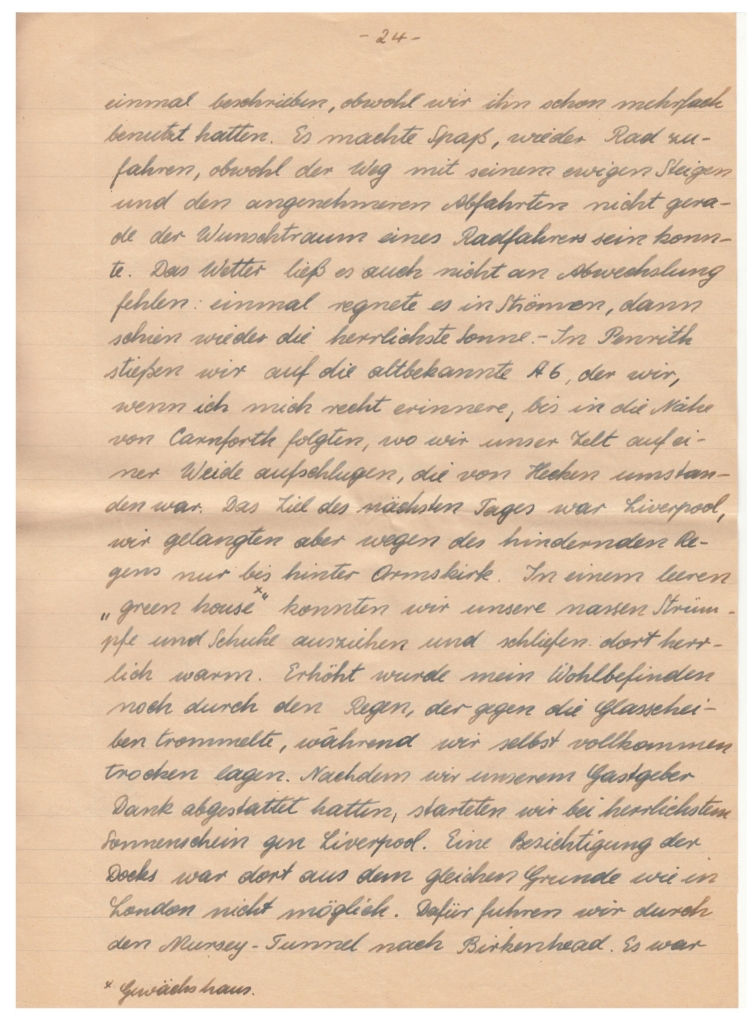 - 24 -
einmal beschrieben, obwohl wir ihn schon mehrfach
benutzt hatten. Es machte Spaß, wieder Rad zu-
fahren, obwohl der Weg mit seinem ewigen Steigen
und den angenehmeren Abfahrten nicht gera-
de der Wunschtraum eines Radfahrers sein konn-
te. Das Wetter ließ es auch nicht an Abwechslung
fehlen: einmal regnete es in Strömen, dann
schien wieder die herrlichste Sonne. - In Penrith
stießen wir auf die altbekannte A 6, der wir,
wenn ich mich recht erinnere, bis in die Nähe
von Carnforth folgten, wo wir unser Zelt auf ei-
ner Weide aufschlugen, die von Hecken umstan-
den war. Das Ziel des nächsten Tages war Liverpool,
wir gelangten aber wegen des hindernden Re-
gens nur bis hinter Ormskirk. In einem leeren
„green house*“ konnten wir unsere nassen Strüm-
pfe und Schuhe ausziehen und schliefen dort herr-
lich warm. Erhöht wurde mein Wohlbefinden
noch durch den Regen, der gegen die Glasschei-
ben trommelte, während wir selbst vollkommen
trocken lagen. Nachdem wir unserem Gastgeber
Dank abgestattet hatten, starteten wir bei herrlichstem
Sonnenschein gen Liverpool. Eine Besichtigung der
Docks war dort aus dem gleichen Grunde wie in
London nicht möglich. Dafür fuhren wir durch
den Mersey-Tunnel nach Birkenhead. Es war
* Gewächshaus.